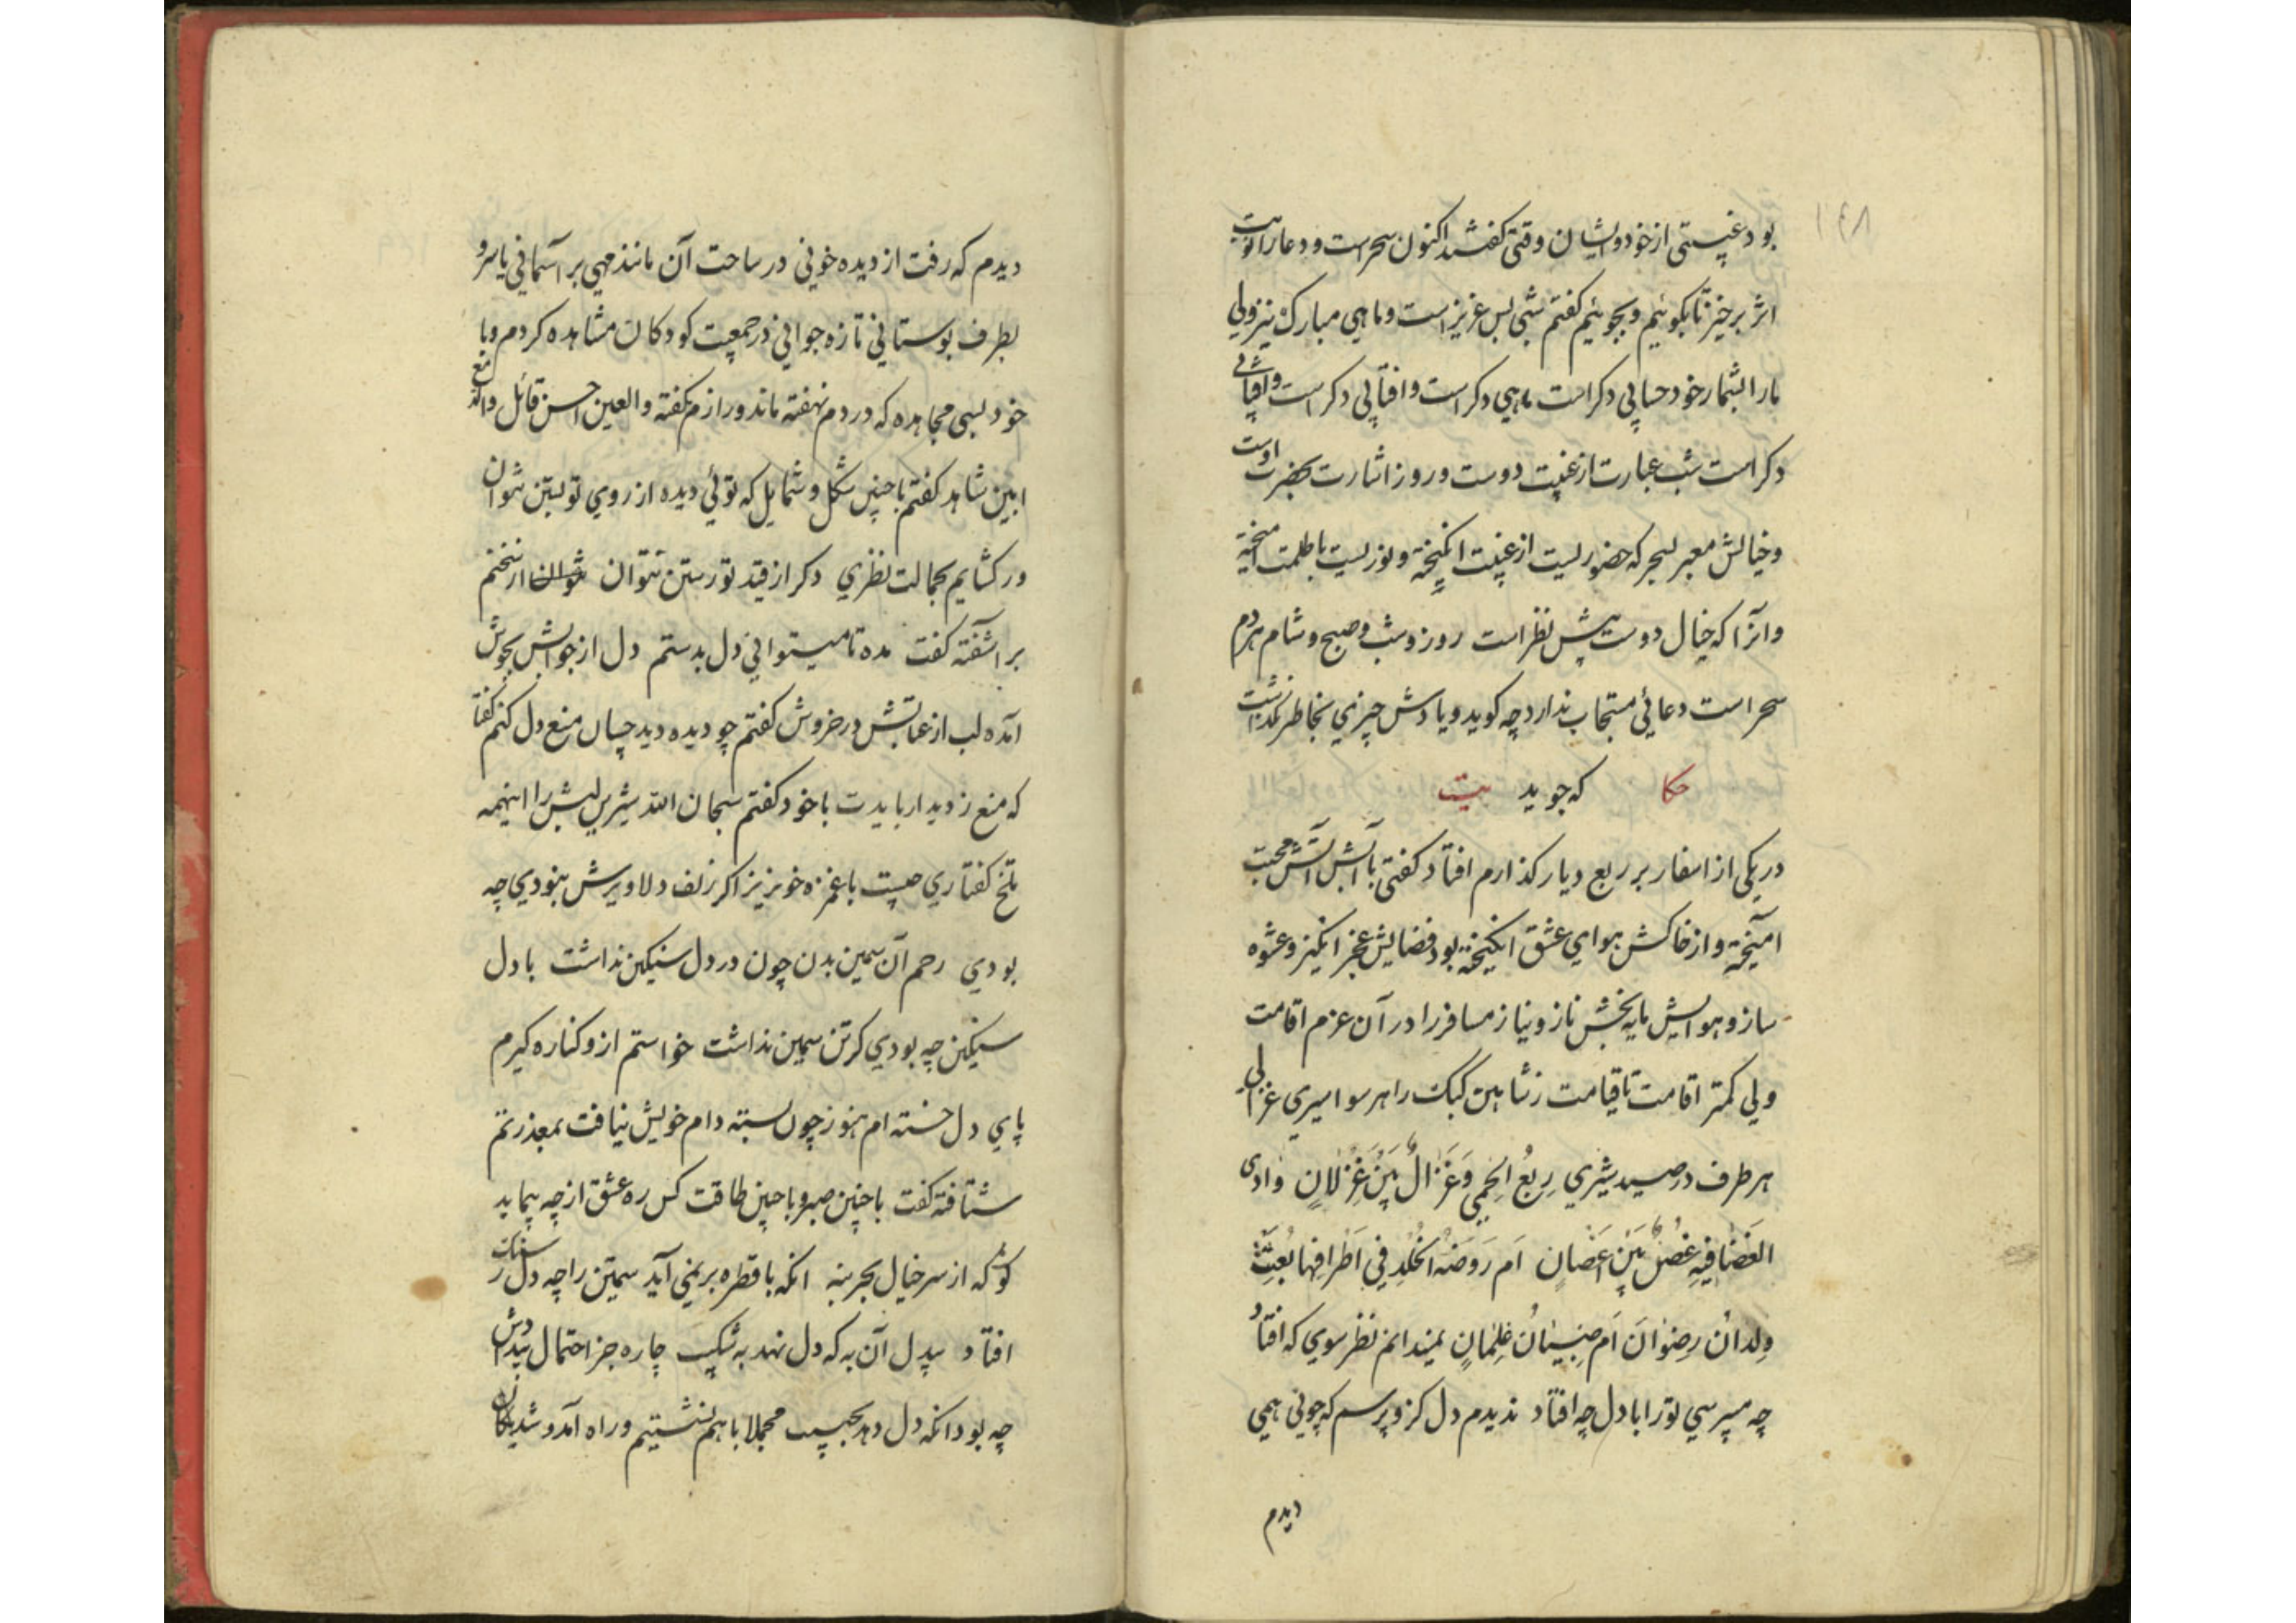 ۱۴۸
بود غیبتی از خود و ایشان وقتی کفتند اکنون سحرست و دعا را نوبت
اثر برخیز تا بکوئیم و بجوئیم کفتم شبی بس عزیز است و ماهی مبارک نیز ولی
ما را بشمار خود حسابی دکر است ماهی دکر است و افتابی دکر است و
دکر است شب عبارت از غیبت دوست و روز اشارت بحضرت اوست
و خیالش معبر بسحر که حضوریست از غیبت انکیخته و نوریست با ظلمت امیخته
و انرا که خیال دوست پیش نظر است روز و شب و صبح و شام هر دم
سحر است دعائی مستجاب ندارد چه کوید و یادش چیزی بخاطر نکذاشت
حکا که جوید بیت
در یکی از اسفار بر ربع دیار کذارم افتاد کفتی با آبش آتش محبت
آمیخته و از خاکش هوای عشق انکیخته بود فضایش عجز انکیز و عشوه
ساز و هوایش مایه بخش ناز و نیاز مسافر را در آن عزم اقامت
ولی کمتر اقامت تا قیامت ز شاهین کبک را هر سو اسیری غزالی
هر طرف در صید شیری رِبعُ الحِمی وَغَزالٌ بَینَ غِزلانٍ وادی
الغَضا فیهِ غُصنٌ بَینَ اَغصانٍ اَم رَوضَة الخُلدِ فی اَطرافِها بُعِثَت
وِلدانُ رِضوانَ اَم صِبیانُ غِلمانٍ نمیدانم نظر سوی که افتاد
چه میپرسی تو را با دل چه افتاد ندیدم دل کزو پرسم که چونی همی
دیدم
دیدم که رفت از دیده خونی در ساحت آن مانند مهی بر آسمانی یا سرو
بطرف بوستانی تازه جوانی در جمعیت کودکان مشاهده کردم و با
خود بسی مجاهده که دردم نهفته ماند و رازم نکفته والعین احسن قائل والدمع
ابین شاهد کفتم با چنین شکل و شمایل که توئی دیده از روی تو بستن نتوان
ور کشایم بجمالت نظری دکر از قید تو رستن نتوان از سخنم
بر آشفته کفت مده تا میتوانی دل بدستم دل از جوابش بجوش
آمده لب از عتابش در خروش کفتم چو دیده دید چسان منع دل کنم کفتا
که منع ز دیدار بایدت با خود کفتم سبحان الله شیرین لبش را اینهمه
تلخ کفتاری چیست با غمزه خونریز اکر زلف دلاویزش نبودی چه
بودی رحم آن سیمین بدن چون در دل سنکین نداشت با دل
سنکین چه بودی کر تن سیمین نداشت خواستم ازو کناره کیرم
پای دل خسته ام هنوز چون بسته دام خویش نیافت بمعذرتم
شتافته کفت با چنین صبر و با چنین طاقت کس ره عشق از چه پیماید
کو که از سر خیال بحر بنه انکه با قطره بر نمی آید سیمتن را چه دل ز سنک
افتاد بیدل آن به که دل نهد به شکیب چاره جز احتمال بیدادش
چه بود انکه دل دهد بحبیب مجملا با هم نشستیم و راه آمد و شد